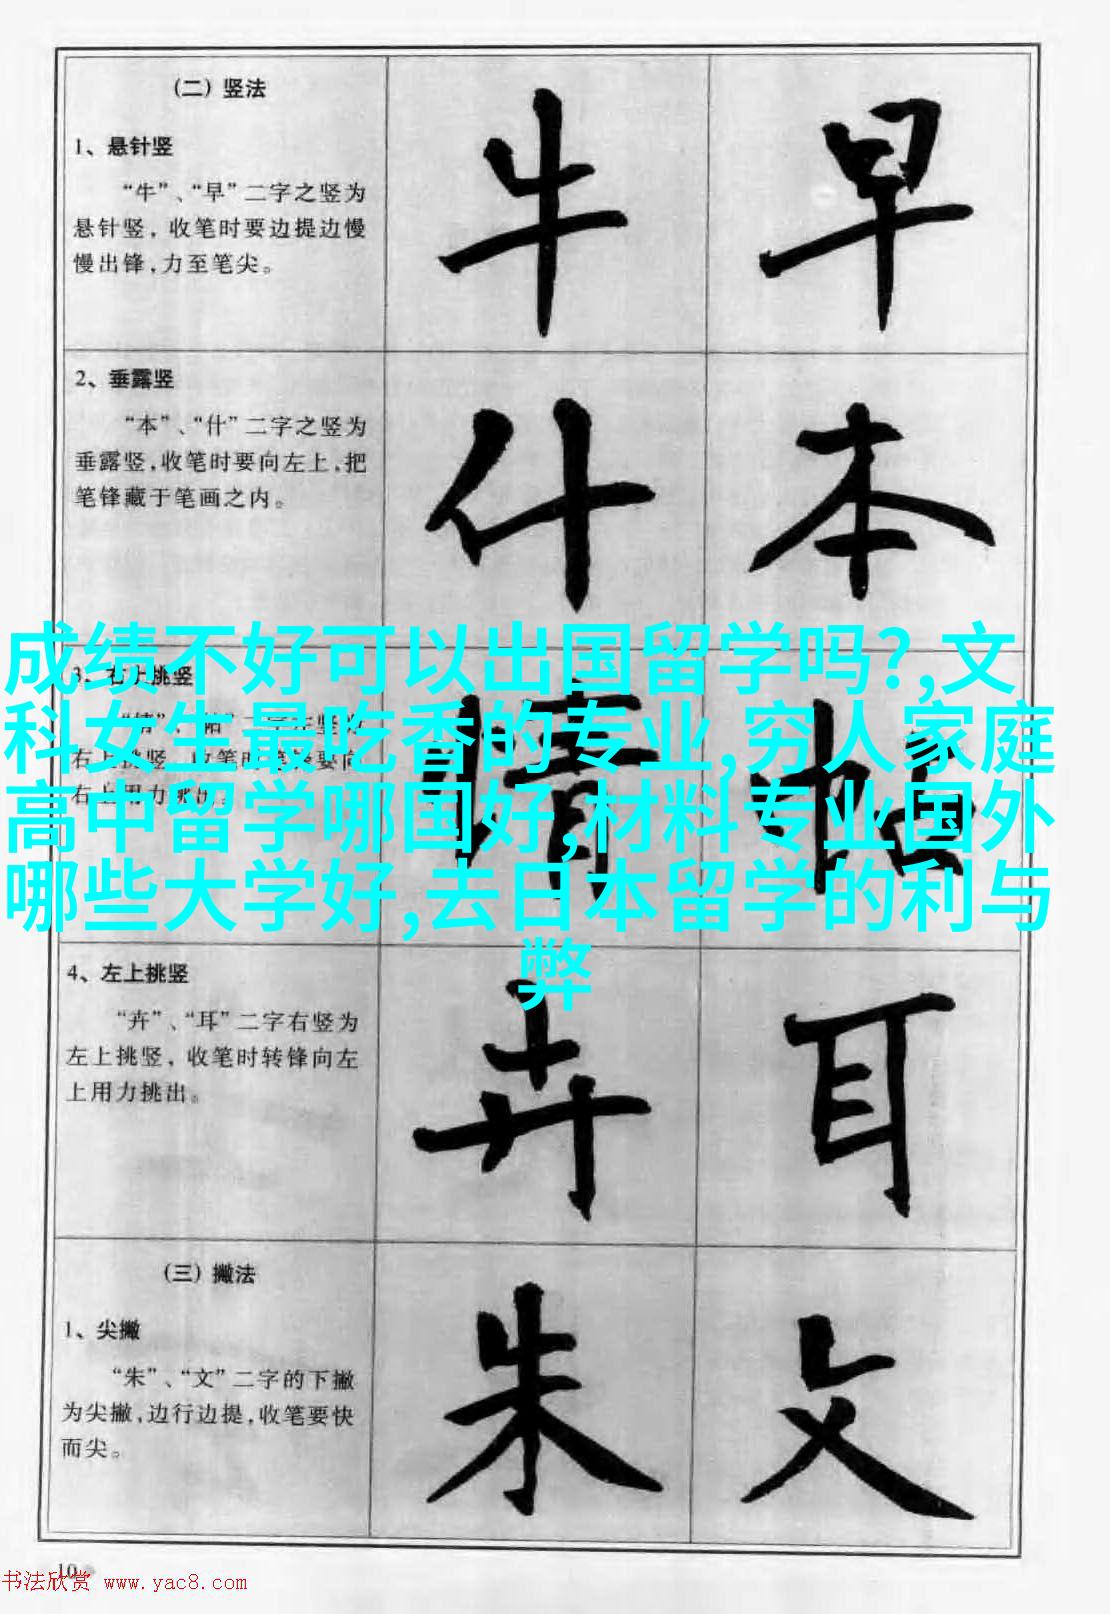 (二) 竖法
1、悬针竖
“牛”、“早”二字之竖为
悬针竖, 收笔时要边提边慢
慢出锋,力至笔尖。
牛 早
2、垂露竖
“本”、“什”二字之竖为
垂露竖,收笔时要向左上,把
笔锋藏于笔画之内。
什 本
成绩不好可以出国留学吗?,文
科女生最吃香的专业,穷人家庭
高中留学哪国好,材料专业国外
哪些大学好,去日本留学的利与
弊
3、右上挑竖
右上挑竖
4、左上挑竖
“卉”、“耳”二字右竖为
左上挑竖, 收笔时转锋向左
上用力挑出。
卉 耳
(三) 撇法
1、尖撇
“朱”、“文”二字的下撇
为尖撇,边行边提,收笔要快
而尖。
朱 文
10
书法欣赏 www.yac8.com